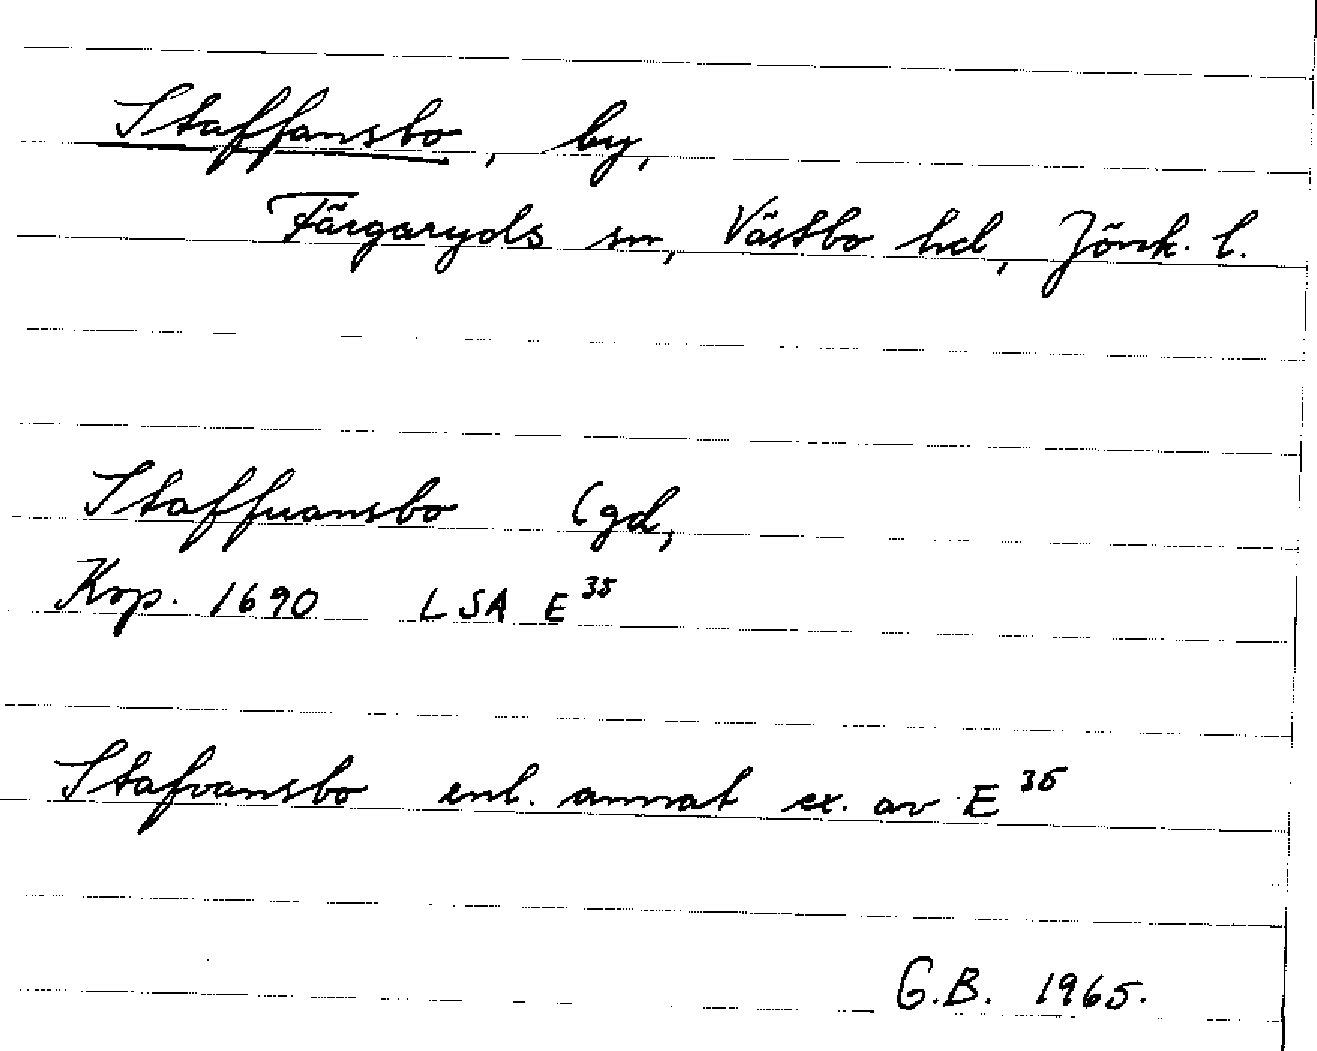 Staffansbo, by,
Färgaryds sn, Västbo hd, Jönk. l.
Staffuansbo (gd,
Kop. 1690 LSA E 35
Stafvansbo enl. annat ex. av E 35
G.B. 1965.